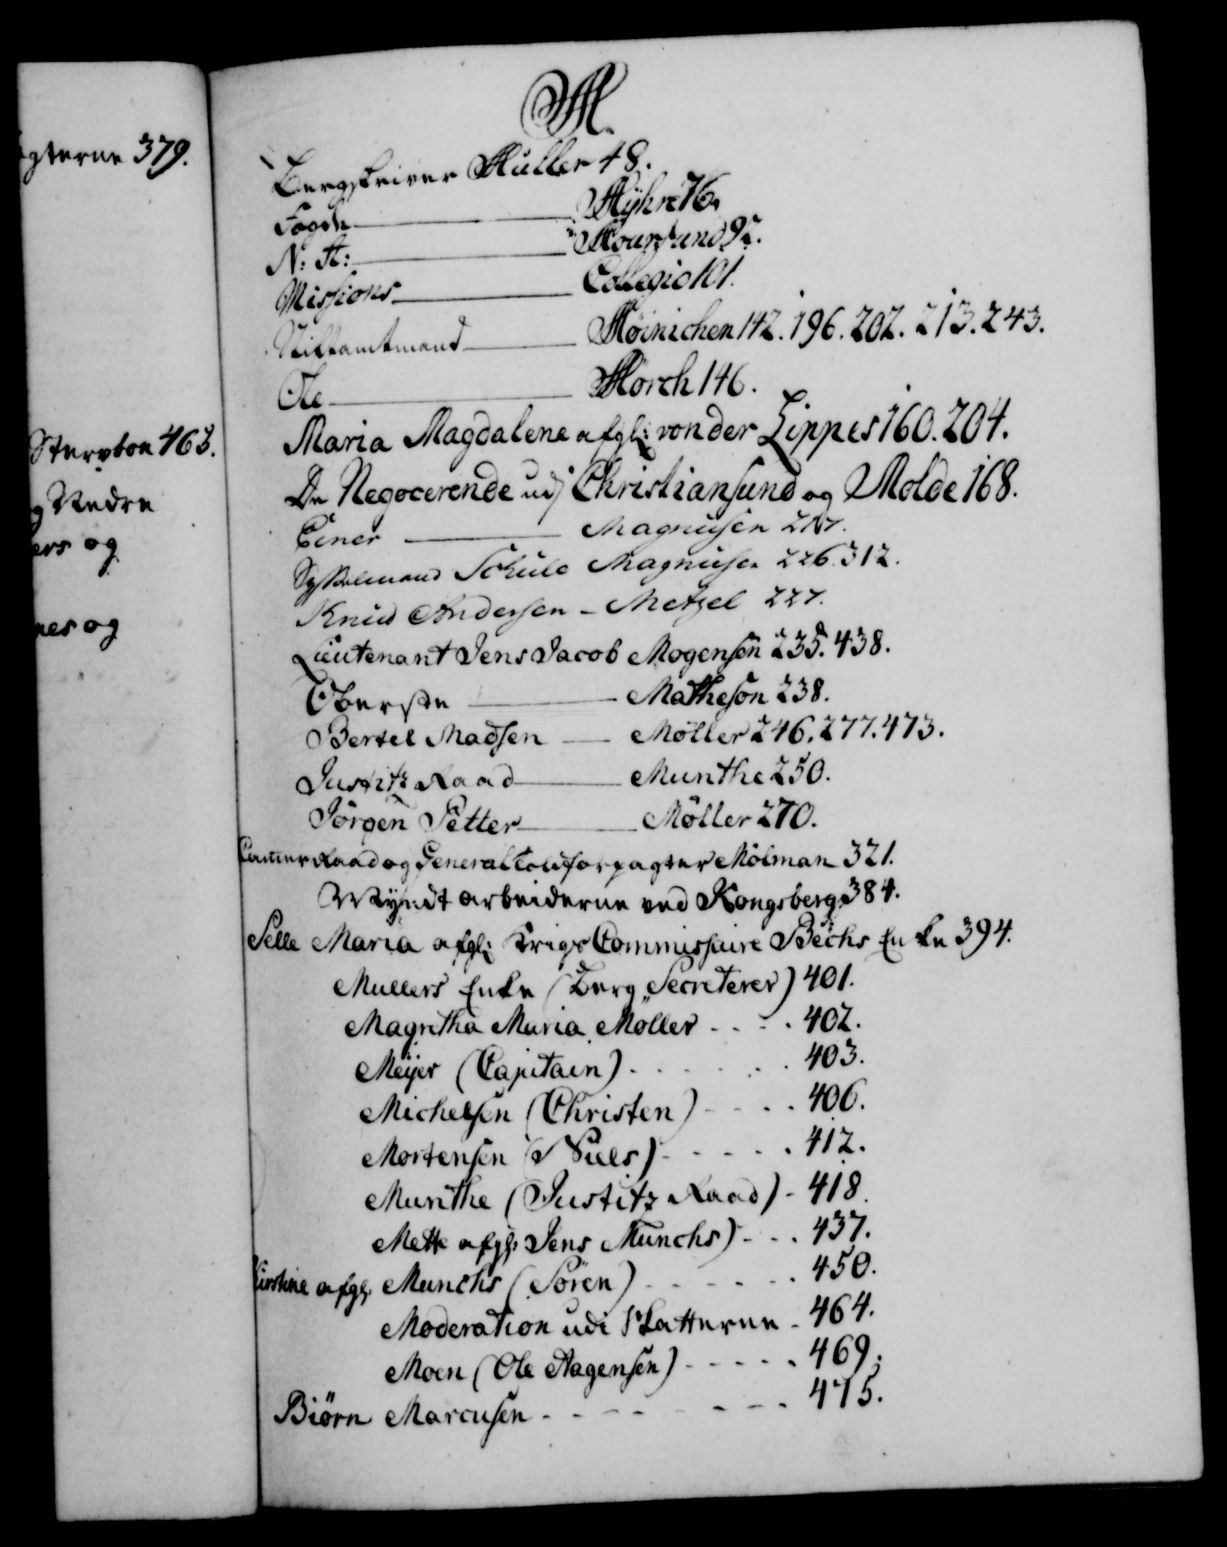 gterne 379.
Stervboe 463.
g Nedre
ers og
nes og
M.
Bergskriver Müller 48.
Foged Myhre 76.
N: A: Moursund 92.
Missions Collegio 101.
Stiftamtmand Møinichen 142. 196. 202. 213. 243.
Ole Mørch 146.
Maria Magdalene afgl: von der Lippes 160. 204.
De Negocerende udj Christiansund og Molde 168.
Einer Magnusen 217.
Sysselmand Schule Magnusen 226. 312.
Knud Andersen - Metzel 227.
Lieutenant Jens Jacob Mogensen 235. 438.
Oberste Matheson 238.
Bertel Madsen Møller 246. 277. 473.
Justitz Raad Munthe 250.
Jörgen Petter Möller 270.
Cammer Raad og General Toldforpagter Mölman 321.
Myndt arbeiderne ved Kongsberg 384.
Selle Maria afgl: Krigs Commissaire Bechs Enke 394.
Mullers Enke (Berg Secreterer) 401.
Magretha Maria Møller .... 402.
Meijer (Capitain) ...... 403.
Michelsen (Christen) .... 406.
Mortensen (Niels) ..... 412.
Munthe (Justitz Raad) - 418.
Mette afgl: Jens Munchs) ... 437.
Kirstine afgl. Munchs (Sören) ...... 450.
Moderation udi Skatterne - 464.
Moen (Ole Aagensen) ..... 469.
Biörn Marcusen ........ 475.